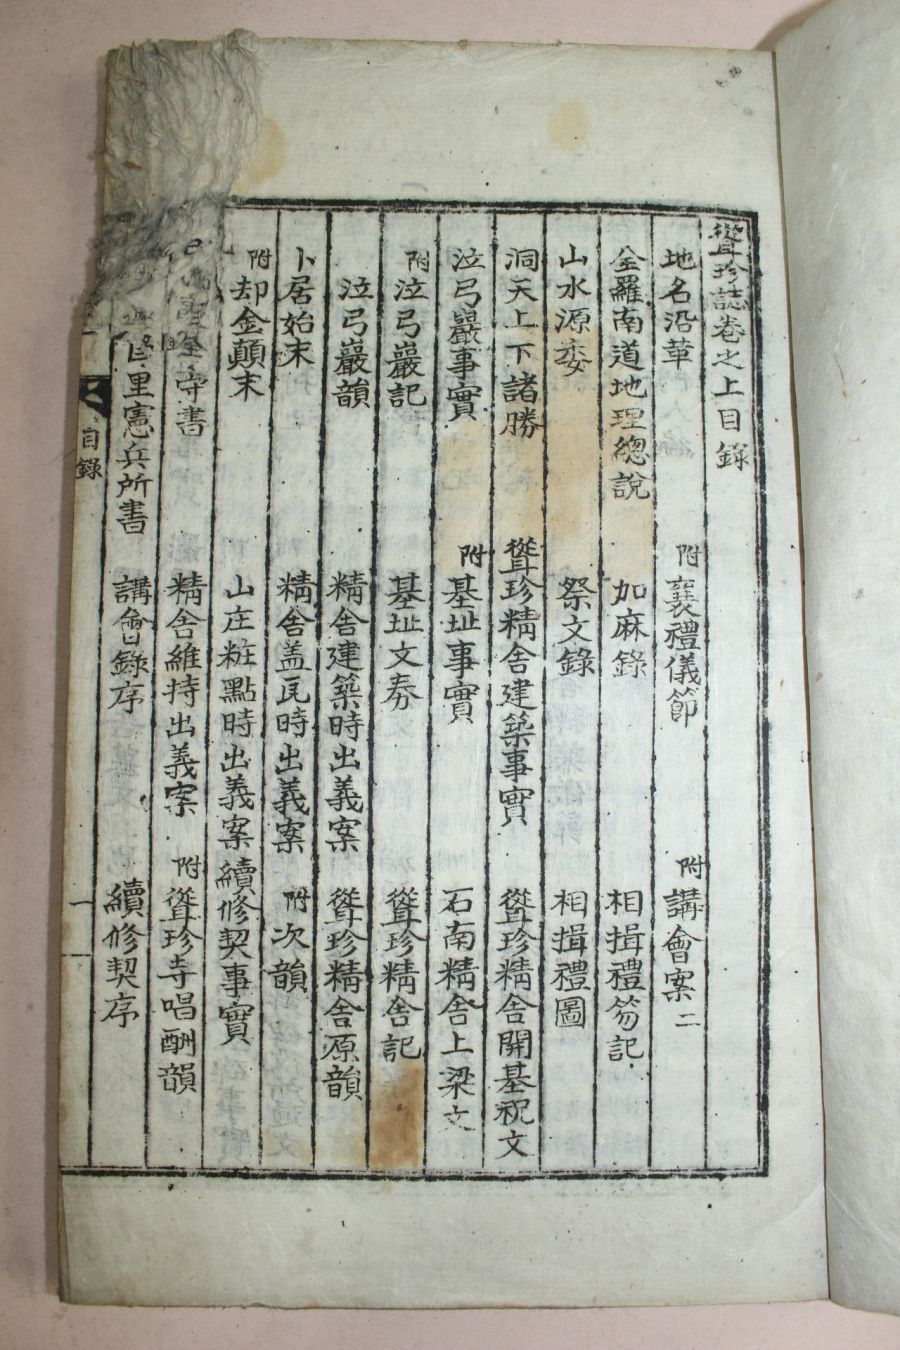 聳珍誌卷之上目錄
地名沿革 附襄禮儀節 附講會案二
全羅南道地理總說 加麻錄 相揖禮笏記
山水源委 祭文錄 相揖禮圖
洞天上下諸勝 聳珍精舍建築事實 聳珍精舍開基祝文
泣弓巖事實 附基址事實 石南精舍上梁文
附泣弓巖記 基址文券 聳珍精舍記
泣弓巖韻 精舍建築時出義案 聳珍精舍原韻
卜居始末 精舍盖瓦時出義案 附次韻
附却金顛末 山庄粧點時出義案 續修契事實
寺書 精舍維持出義案 附聳珍寺唱酬韻
里憲兵所書 講會錄序 續修契序
目錄
一